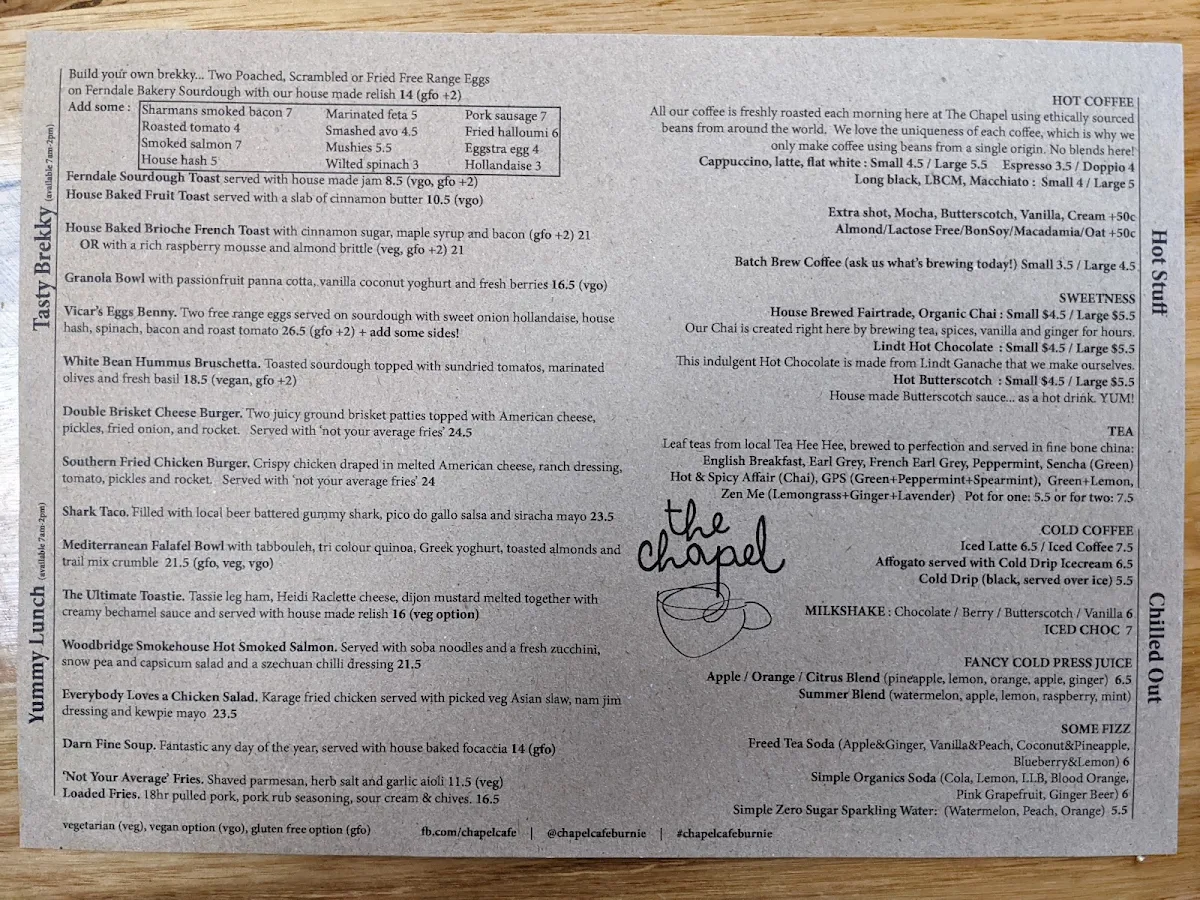 Tasty Brekky (available 7am-2pm)
Build your own brekky... Two Poached, Scrambled or Fried Free Range Eggs
on Ferndale Bakery Sourdough with our house made relish 14 (gfo +2)
Add some :
Sharmans smoked bacon 7 Marinated feta 5 Pork sausage 7
Roasted tomato 4 Smashed avo 4.5 Fried halloumi 6
Smoked salmon 7 Mushies 5.5 Eggstra egg 4
House hash 5 Wilted spinach 3 Hollandaise 3
Ferndale Sourdough Toast served with house made jam 8.5 (vgo, gfo +2)
House Baked Fruit Toast served with a slab of cinnamon butter 10.5 (vgo)
House Baked Brioche French Toast with cinnamon sugar, maple syrup and bacon (gfo +2) 21
OR with a rich raspberry mousse and almond brittle (veg, gfo +2) 21
Granola Bowl with passionfruit panna cotta, vanilla coconut yoghurt and fresh berries 16.5 (vgo)
Vicar's Eggs Benny. Two free range eggs served on sourdough with sweet onion hollandaise, house
hash, spinach, bacon and roast tomato 26.5 (gfo +2) + add some sides!
White Bean Hummus Bruschetta. Toasted sourdough topped with sundried tomatos, marinated
olives and fresh basil 18.5 (vegan, gfo +2)
Yummy Lunch (available 7am-2pm)
Double Brisket Cheese Burger. Two juicy ground brisket patties topped with American cheese,
pickles, fried onion, and rocket. Served with 'not your average fries' 24.5
Southern Fried Chicken Burger. Crispy chicken draped in melted American cheese, ranch dressing,
tomato, pickles and rocket. Served with 'not your average fries' 24
Shark Taco. Filled with local beer battered gummy shark, pico do gallo salsa and siracha mayo 23.5
Mediterranean Falafel Bowl with tabbouleh, tri colour quinoa, Greek yoghurt, toasted almonds and
trail mix crumble 21.5 (gfo, veg, vgo)
The Ultimate Toastie. Tassie leg ham, Heidi Raclette cheese, dijon mustard melted together with
creamy bechamel sauce and served with house made relish 16 (veg option)
Woodbridge Smokehouse Hot Smoked Salmon. Served with soba noodles and a fresh zucchini,
snow pea and capsicum salad and a szechuan chilli dressing 21.5
Everybody Loves a Chicken Salad. Karage fried chicken served with picked veg Asian slaw, nam jim
dressing and kewpie mayo 23.5
Darn Fine Soup. Fantastic any day of the year, served with house baked focaccia 14 (gfo)
'Not Your Average' Fries. Shaved parmesan, herb salt and garlic aioli 11.5 (veg)
Loaded Fries. 18hr pulled pork, pork rub seasoning, sour cream & chives. 16.5
vegetarian (veg), vegan option (vgo), gluten free option (gfo)
fb.com/chapelcafe | @chapelcafeburnie | #chapelcafeburnie
the
chapel
Hot Stuff
HOT COFFEE
All our coffee is freshly roasted each morning here at The Chapel using ethically sourced
beans from around the world. We love the uniqueness of each coffee, which is why we
only make coffee using beans from a single origin. No blends here!
Cappuccino, latte, flat white : Small 4.5 / Large 5.5 Espresso 3.5 / Doppio 4
Long black, LBCM, Macchiato : Small 4 / Large 5
Extra shot, Mocha, Butterscotch, Vanilla, Cream +50c
Almond/Lactose Free/BonSoy/Macadamia/Oat +50c
Batch Brew Coffee (ask us what's brewing today!) Small 3.5 / Large 4.5
SWEETNESS
House Brewed Fairtrade, Organic Chai : Small $4.5 / Large $5.5
Our Chai is created right here by brewing tea, spices, vanilla and ginger for hours.
Lindt Hot Chocolate : Small $4.5 / Large $5.5
This indulgent Hot Chocolate is made from Lindt Ganache that we make ourselves.
Hot Butterscotch : Small $4.5 / Large $5.5
House made Butterscotch sauce... as a hot drink. YUM!
TEA
Leaf teas from local Tea Hee Hee, brewed to perfection and served in fine bone china:
English Breakfast, Earl Grey, French Earl Grey, Peppermint, Sencha (Green)
Hot & Spicy Affair (Chai), GPS (Green+Peppermint+Spearmint), Green+Lemon,
Zen Me (Lemongrass+Ginger+Lavender) Pot for one: 5.5 or for two: 7.5
Chilled Out
COLD COFFEE
Iced Latte 6.5 / Iced Coffee 7.5
Affogato served with Cold Drip Icecream 6.5
Cold Drip (black, served over ice) 5.5
MILKSHAKE : Chocolate / Berry / Butterscotch / Vanilla 6
ICED CHOC 7
FANCY COLD PRESS JUICE
Apple / Orange / Citrus Blend (pineapple, lemon, orange, apple, ginger) 6.5
Summer Blend (watermelon, apple, lemon, raspberry, mint)
SOME FIZZ
Freed Tea Soda (Apple&Ginger, Vanilla&Peach, Coconut&Pineapple,
Blueberry&Lemon) 6
Simple Organics Soda (Cola, Lemon, LLB, Blood Orange,
Pink Grapefruit, Ginger Beer) 6
Simple Zero Sugar Sparkling Water: (Watermelon, Peach, Orange) 5.5